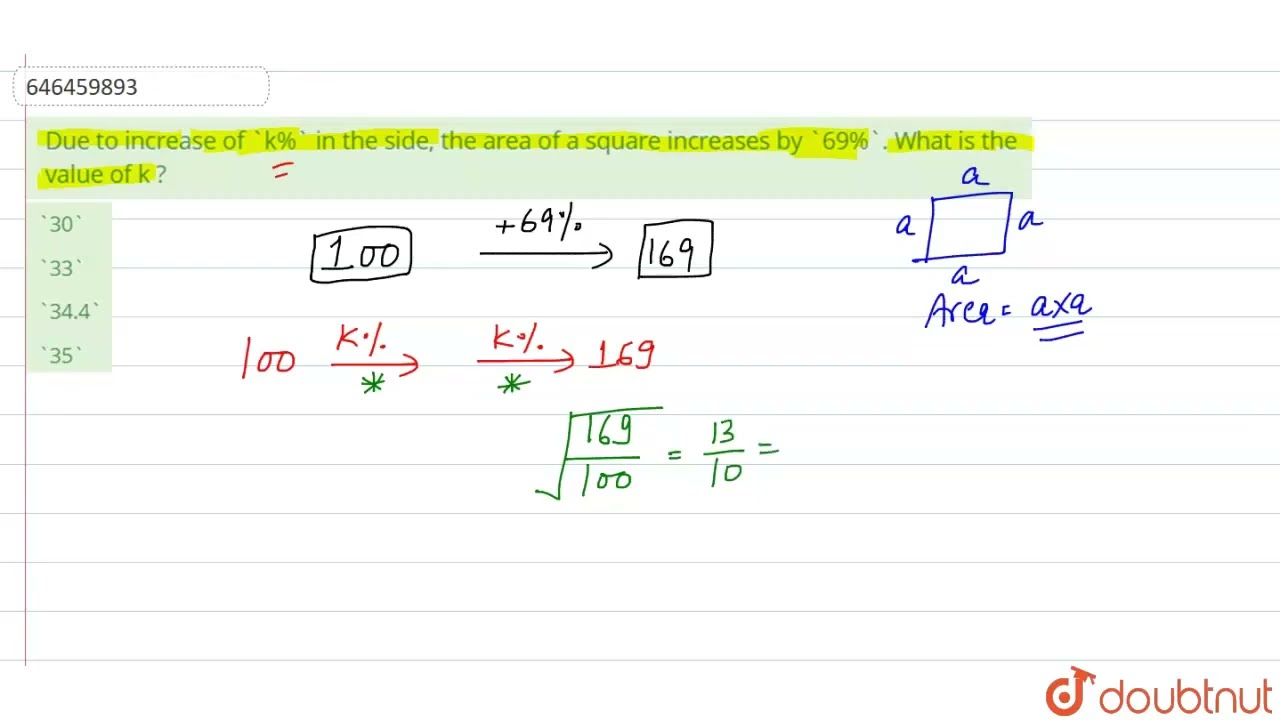 646459893
Due to increase of `k%` in the side, the area of a square increases by `69%`. What is the
value of k ?
`30`
`33`
`34.4`
`35`
100 +69% 169
a
a a
a
Area = a×a
100 K% K% 169
* *
√169/100 = 13/10 =
doubtnut